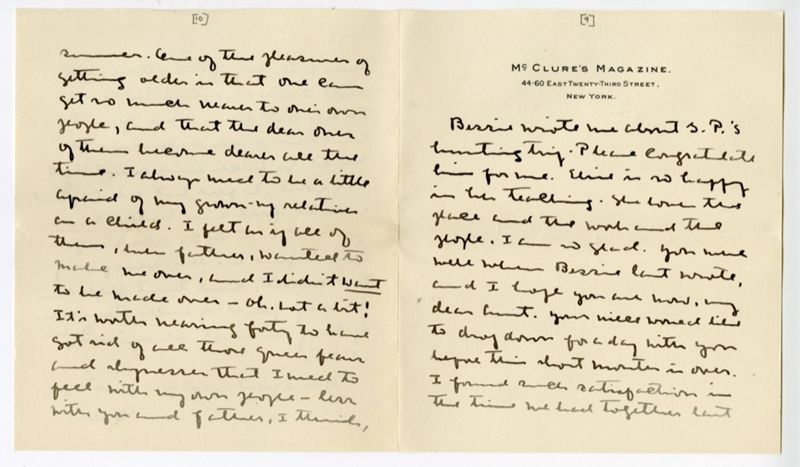 [9]
Mc CLURE'S MAGAZINE.
44-60 EAST TWENTY-THIRD STREET.
NEW YORK.
Bessie wrote me about S. P.'s
hunting trip. Please Congratulate
him for me. Elsie is so happy
in her teaching. She loves the
place and the work and the
people. I am so glad. You were
well when Bessie last wrote,
and I hope you are now, my
dear Aunt. Your niece would like
to drop down for a day with you
before this short month is over.
I found such satisfaction in
the time we had together last
[10]
summer. One of the pleasures of
getting older is that one can
get so much nearer to one's own
people, and that the dear ones
of them become dearer all the
time. I always used to be a little
afraid of my grown-up relatives
as a child. I felt as if all of
them, even father, wanted to
make me over, and I didn't want
to be made over - oh, not a bit!
It's worth nearing forty to have
got rid of all those queer fears
and shynesses that I used to
feel with my own people - less
with you and father, I think,